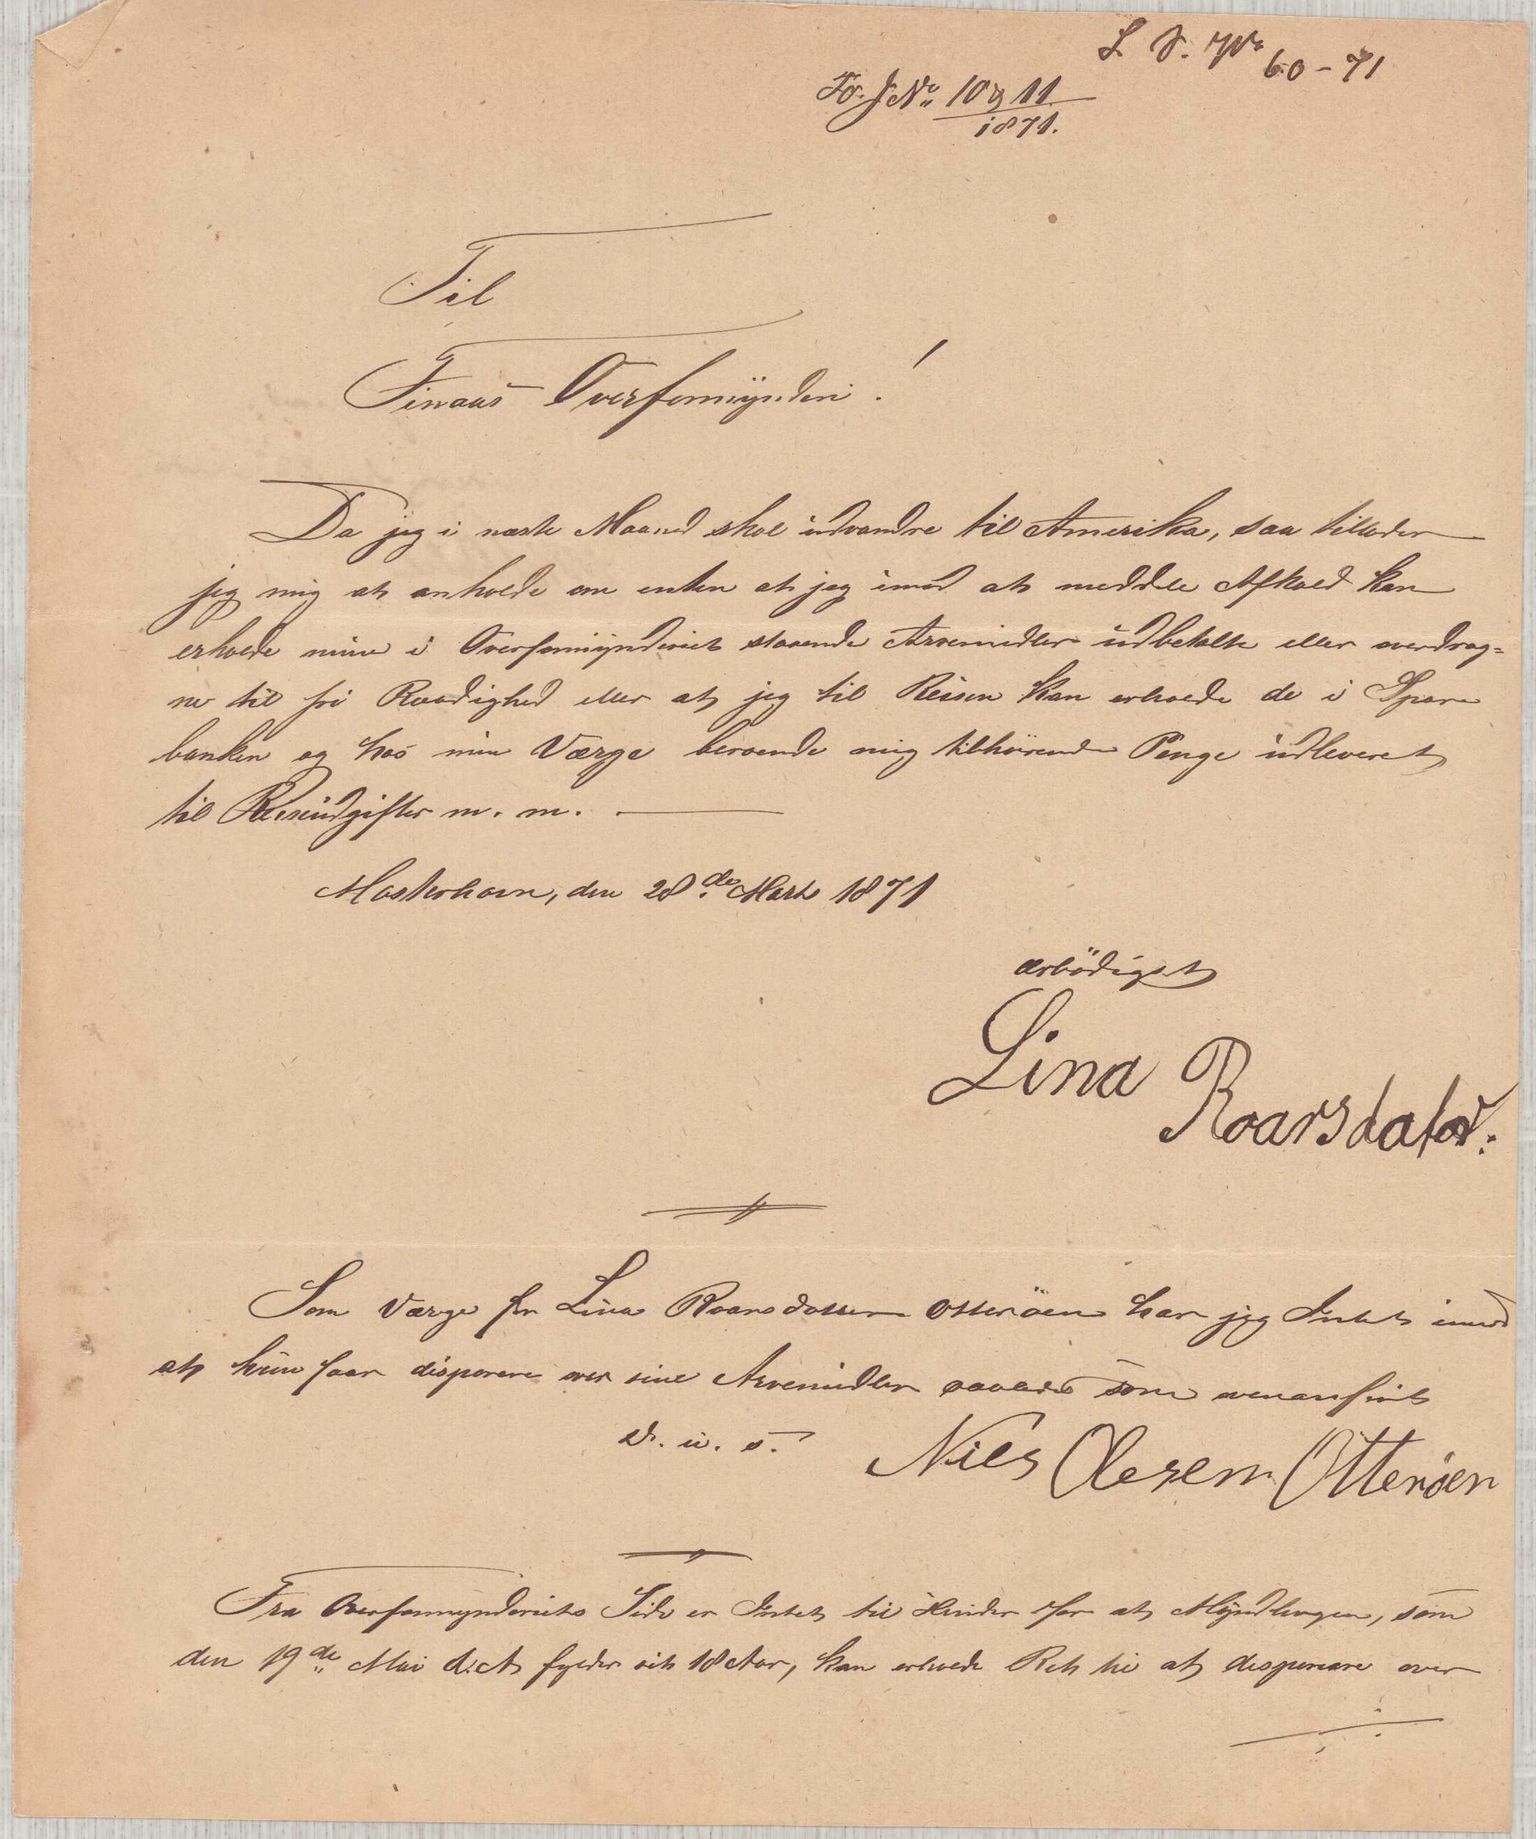 L. S. No 60-71
Fo. J No 10 & 11
1871.
Til
Finaas Overformynderi!
Da jeg i næste Maaned skal udvandre til Amerika, saa tillader
jeg mig at anholde om enten at jeg imod at meddele Afkald kan
erholde mine i Overformynderiet staaende Arvemidler udbetalte eller overdrag-
ne til fri Raadighed eller at jeg til Reisen kan erholde de i Spare
banken og hos min Værge beroende mig tilhørende Penge udleveret
til Reiseudgifter m. m.
Mosterhavn, den 28de Marts 1871
ærbödigst
Lina Roarsdater.
Som Værge for Lina Roarsdatter Otteröen har jeg Intet imod
at hun faar disponere over sine Arvemidler saaledes som ovenanført
D. u. s. Niels Olesen Otterøen
Fra Overformynderiets Side er Intet til Hinder for at Myndlingen, som
den 19de Mai d: A: fylder sit 18 Aar, kan erholde Ret til at disponere over